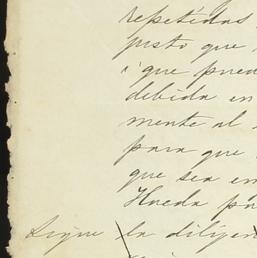 repetidas
justo que
i que pueda
debida en
mente al
para que
que sea en
Hueda por
Sigue la diligen